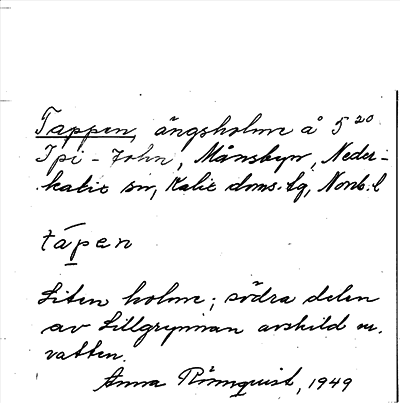 Tappen, ängsholme å 5²⁰
Ipi-John, Månsbyn, Neder-
kalix sn, Kalix doms.lg, Norrb. l
tápen
Liten holme; södra delen
av Lillgrynnan avskild m.
vatten.
Anna Rönnquist, 1949